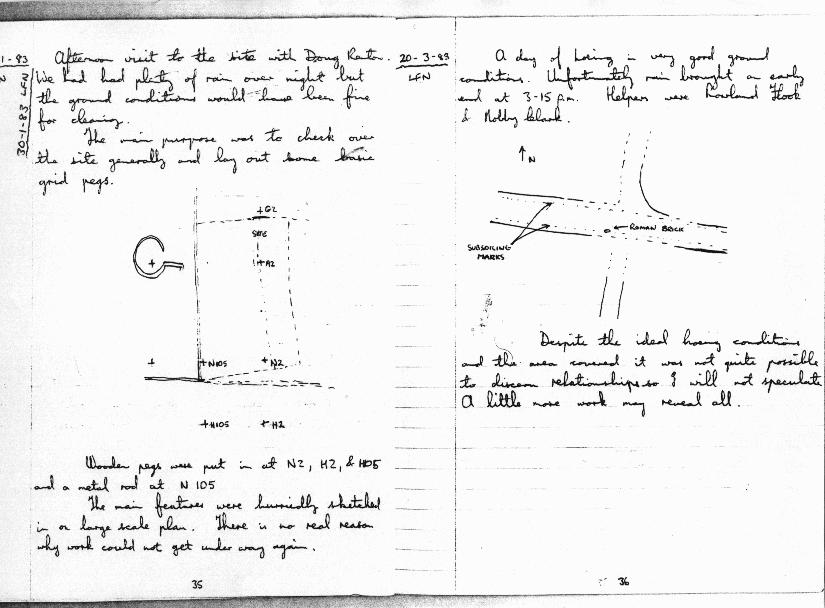 1-83
N
30-1-83 LFN
Afternoon visit to the site with Doug
We had had plenty of rain over night but
the ground conditions would have been fine
for clearing.
The main purpose was to check over
the site generally and lay out some basic
grid pegs.
+G2
SITE
+A2
+N105
+N2
+H105
+H2
Wooden pegs were put in at N2, H2, & H105
and a metal rod at N 105
The main features were hurriedly sketched
in on large scale plan. There is no real reason
why work could not get under way again.
35
20-3-83
LFN
A day of hoeing in very good ground
conditions. Unfortunately rain brought an early
end at 3-15 p.m. Helpers were Rowland Hook
& Molly Clark.
N
ROMAN BRICK
SUBSOILING
MARKS
Despite the ideal hoeing conditions
and the area covered it was not quite possible
to discern relationships so I will not speculate
A little more work may reveal all.
36